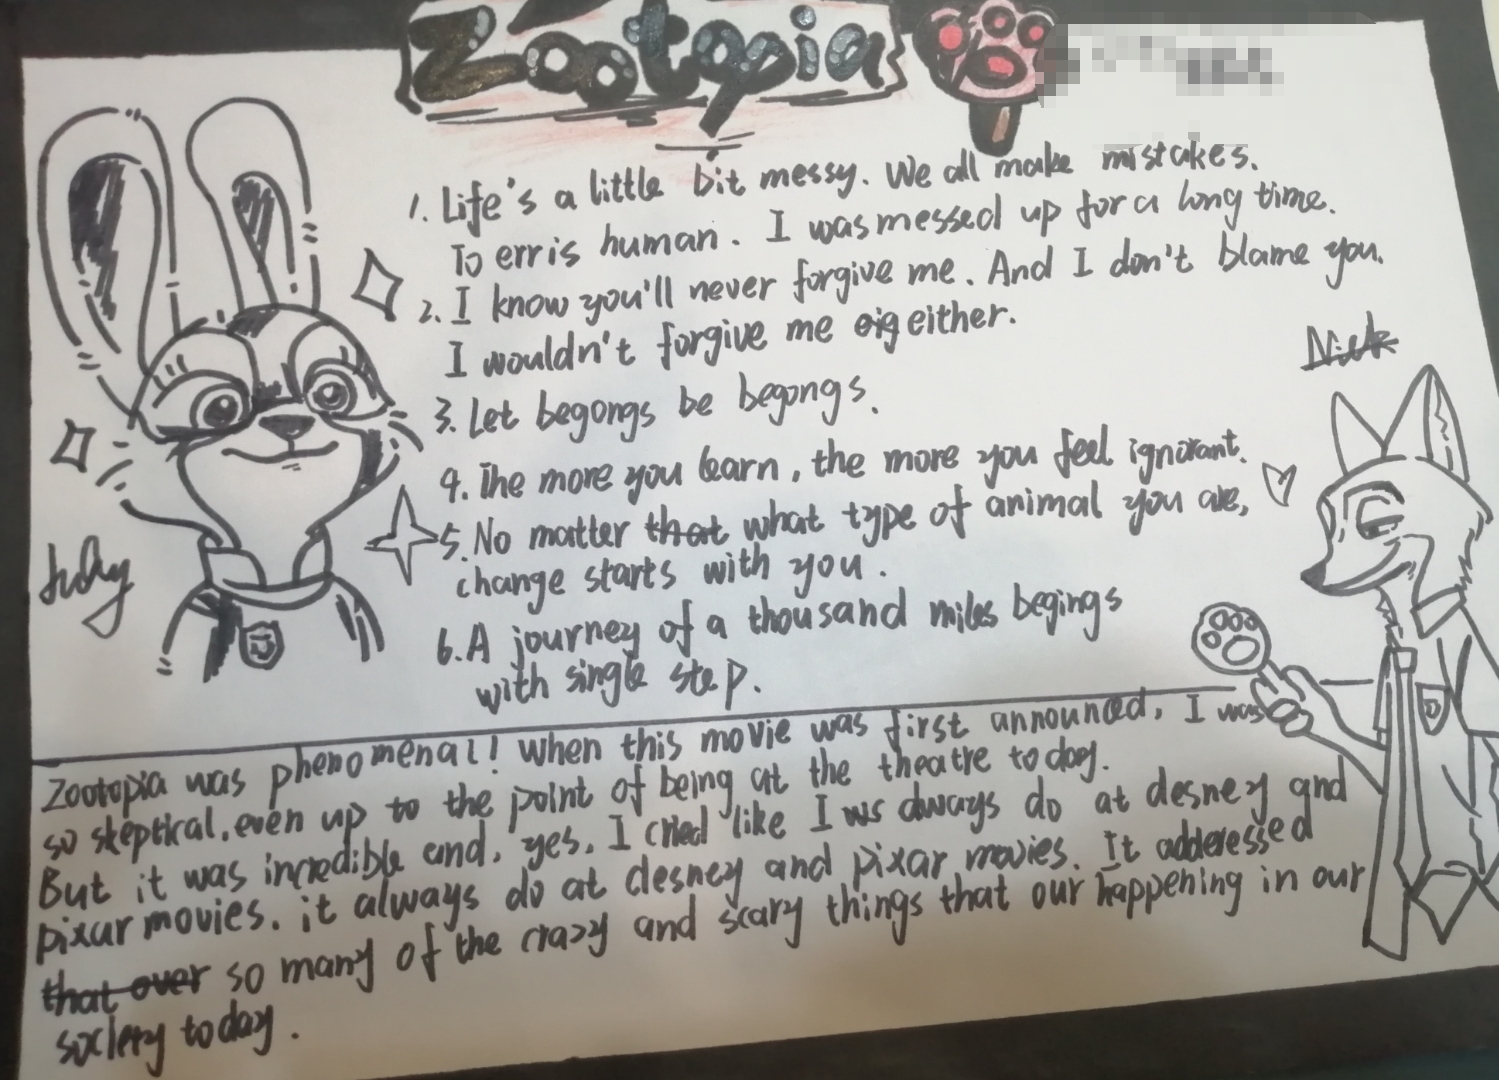 Zootopia
1. Life's a little bit messy. We all make mistakes.
To err is human. I was messed up for a long time.
2. I know you'll never forgive me. And I don't blame you.
I wouldn't forgive me eig either.
Nick
3. Let begongs be begongs.
4. The more you learn, the more you feel ignorant.
5. No matter that what type of animal you are,
change starts with you.
Judy
6. A journey of a thousand miles begings
with single step.
Zootopia was phenomenal! When this movie was first announced, I was
so skeptical. even up to the point of being at the theatre today.
But it was incredible and, yes, I cried like I ws always do at desney and
pixar movies. it always do at desney and pixar movies. It adderessed
that over so many of the crazy and scary things that our happening in our
society today.